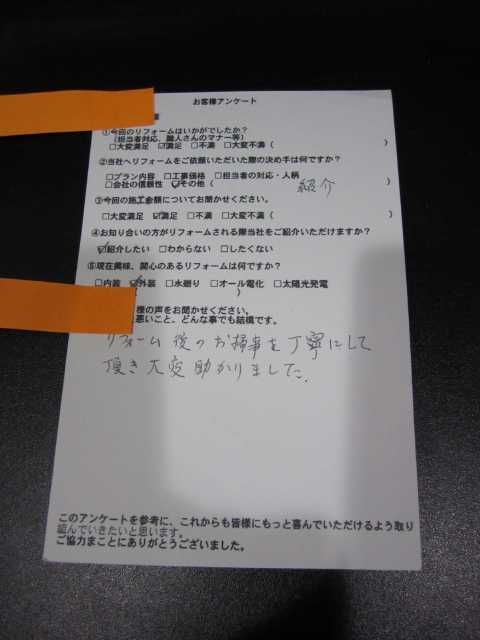 お客様アンケート
①今回のリフォームはいかがでしたか?
(担当者対応、職人さんのマナー等)
□大変満足 ☑満足 □不満 □大変不満( )
②当社へリフォームをご依頼いただいた際の決め手は何ですか?
□プラン内容 □工事価格 □担当者の対応・人柄
□会社の信頼性 ☑その他( 紹介 )
③今回の施工金額についてお聞かせください。
□大変満足 ☑満足 □不満 □大変不満( )
④お知り合いの方がリフォームされる際当社をご紹介いただけますか?
☑紹介したい □わからない □したくない
⑤現在興味、関心のあるリフォームは何ですか?
□内装 ☑外装 □水廻り □オール電化 □太陽光発電
)
様の声をお聞かせください。
悪いこと、どんな事でも結構です。
リフォーム後のお掃事を丁寧にして
頂き大変助かりました。
このアンケートを参考に、これからも皆様にもっと喜んでいただけるよう取り
組んでいきたいと思います。
ご協力まことにありがとうございました。